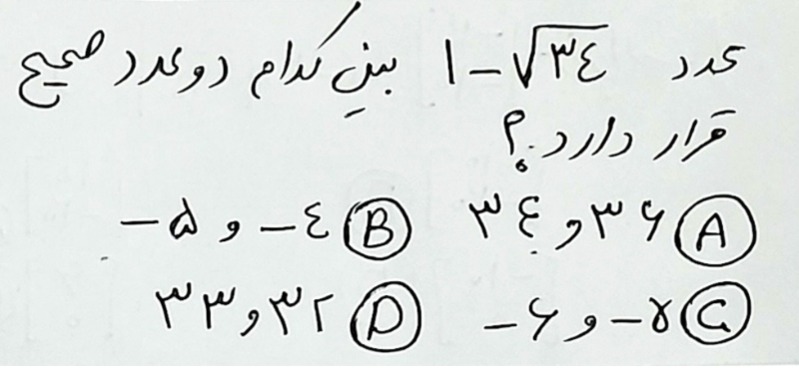 عدد ۱-√۳۴ بینِ کدام دو عدد صحیح
قرار دارد؟
A ۳۶ و ۳۴ B -۴ و -۵
C -۵ و -۶ D ۳۲ و ۳۳